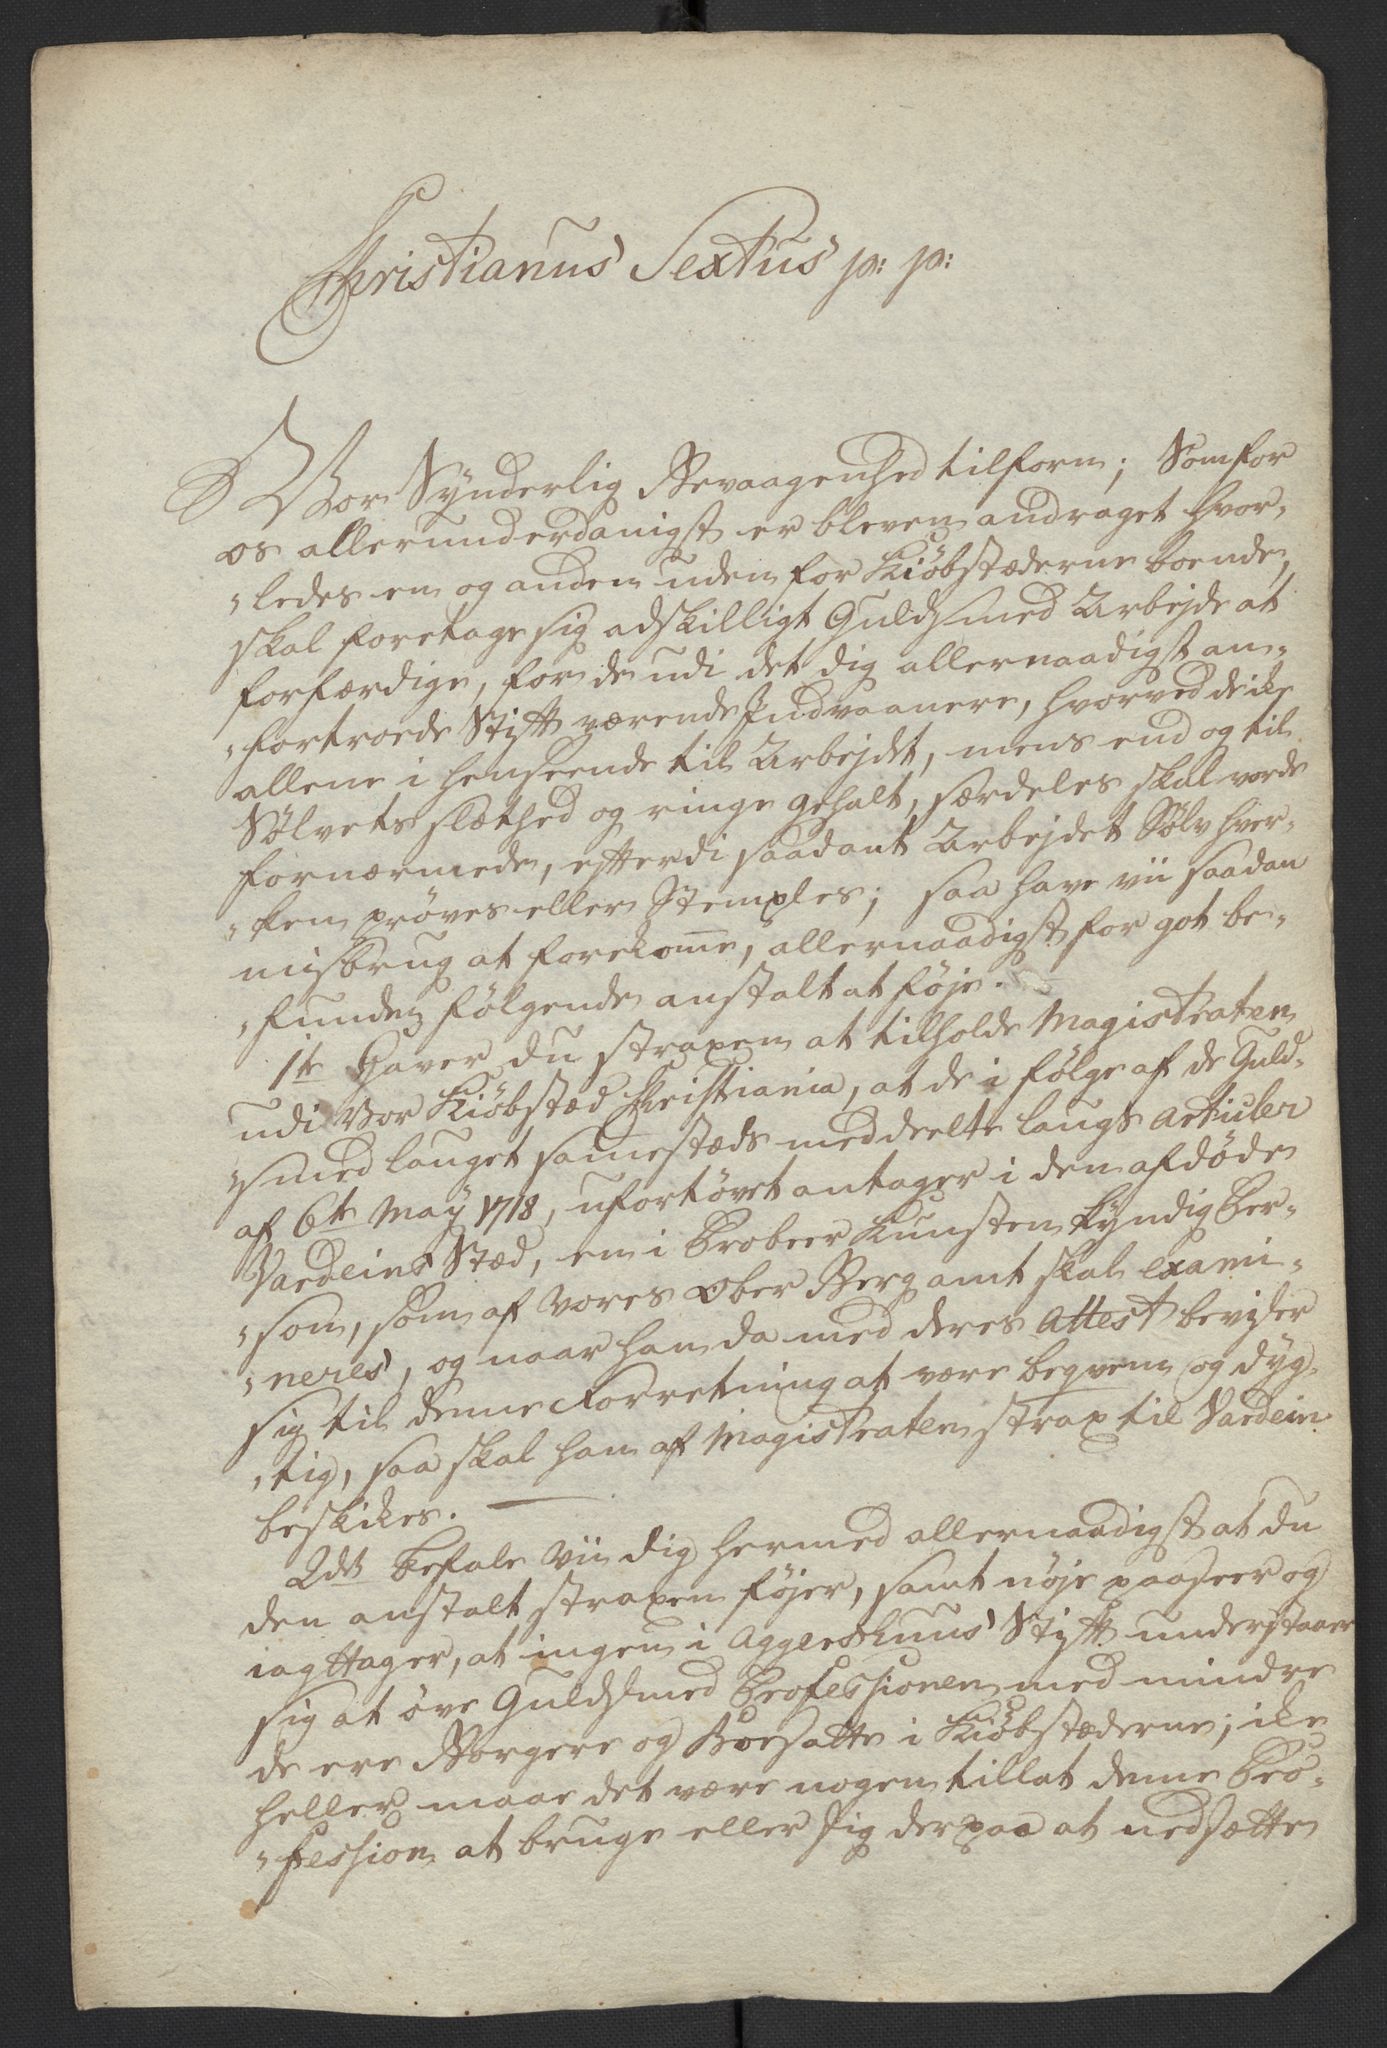 Christianus Sextus p: p:
Vor Synderlig Bevaagenhed tilforn; Som for
os allerunderdanigst er bleven andraget hvor„
„ledes en og anden uden for Kiöbstæderne boende,
skal foretage sig adskilligt Guldsmed Arbejde at
forfærdige, for de udi det dig allernaadigst an„
„fortroede Stift værende Indvaanere, hvorved de ike
allene i henseende til Arbejdet, mens end og til
Sølvets slethed og ringe gehalt, særdeles skal vorde
fornærmede, efterdi saadant Arbejdet Sølv hver„
„ken prøves eller Stemples; saa have vii saadan
misbrug at forekome, allernaadigst for got be„
„funden følgende anstalt at føje.
1te Haver du straxen at tilholde Magistraten
udi Vor Kiöbstæd Christiania, at de i følge af de Guld„
„smed lauget samestæds meddeelte laugs Articuler
af 6te May 1718, ufortøvet antager i den afdøde
Vardeins Stæd, en i Probeer Kunsten kyndig Per„
„son, som af Vores Ober Berg amt skal exami„
„neres, og naar han da med deres Attest beviser
sig til denne Forretning at være beqvem og dyg„
„tig, saa skal han af Magistraten strax til Vardein
beskikes.
2det Befale Vii dig hermed allernaadigst at du
den anstalt straxen føjer, samt nøje paaseer og
iagttager, at ingen i Aggershuus Stift understaaer
sig at öve Guldsmed Professionen med mindre
de ere Borgere og Boesatte i Kiöbstæderne; ike
heller maae det være nogen tillat denne Pro„
„fession at bruge eller sig derpaa at nedsætte